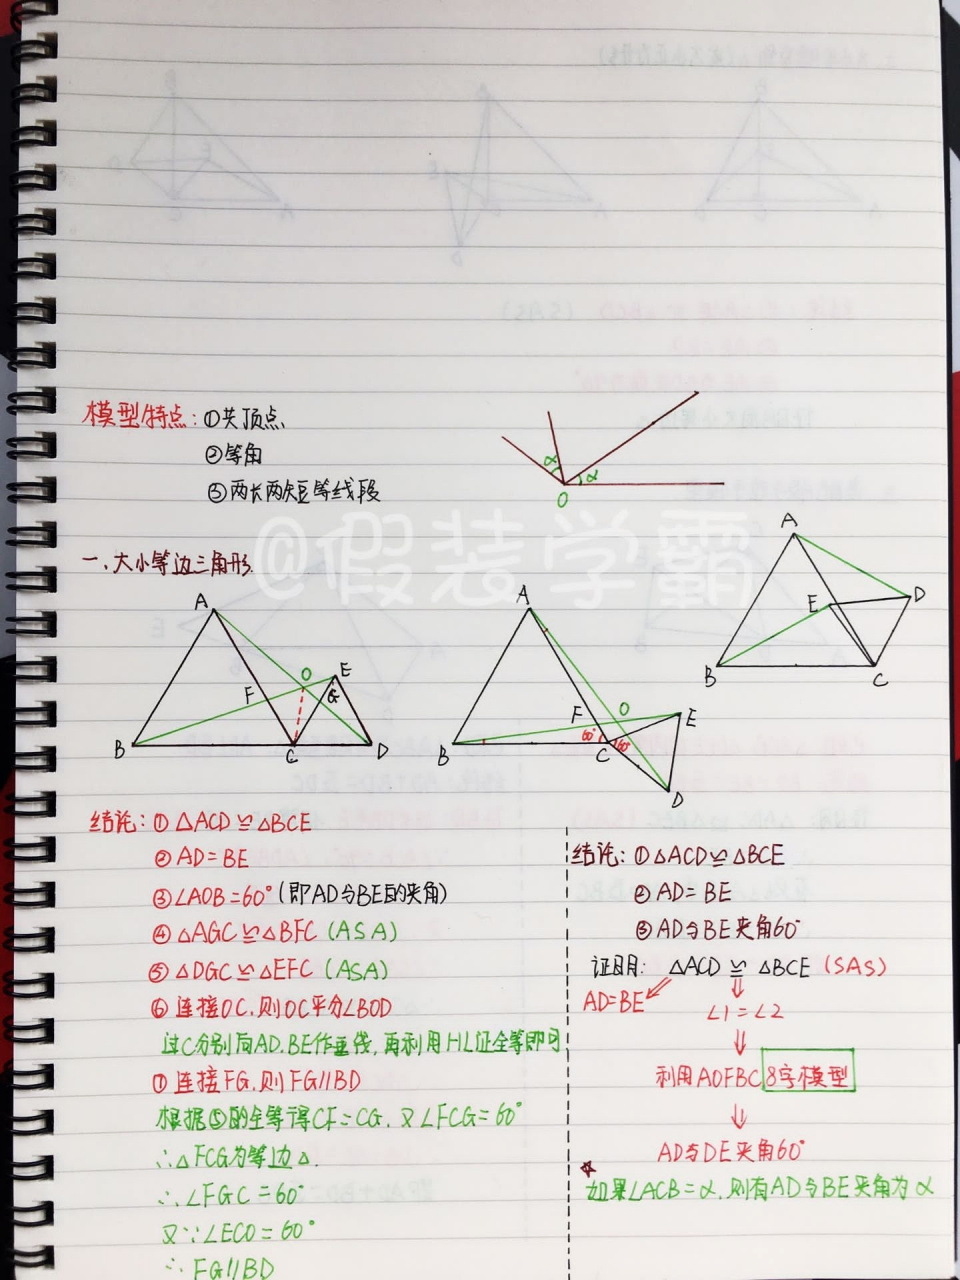 模型特点：①共顶点
②等角
③两长两短等线段
α
α
O
@假装学霸
一、大小等边三角形
A
B
C
D
E
F
G
O
A
B
C
D
E
F
O
60°
60°
A
B
C
D
E
结论：①△ACD≌△BCE
②AD=BE
③∠AOB=60°(即AD与BE的夹角)
④△AGC≌△BFC(ASA)
⑤△DGC≌△EFC(ASA)
⑥连接OC,则OC平分∠BOD
过C分别向AD、BE作垂线,再利用HL证全等即可
⑦连接FG,则FG//BD
根据⑤的全等得CF=CG,又∠FCG=60°
∴△FCG为等边△.
∴∠FGC=60°
又∵∠ECD=60°
∴FG//BD
结论：①△ACD≌△BCE
②AD=BE
③AD与BE夹角60°
证明：△ACD≌△BCE(SAS)
AD=BE
∠1=∠2
利用AOFBC8字模型
AD与DE夹角60°
如果∠ACB=α,则有AD与BE夹角为α